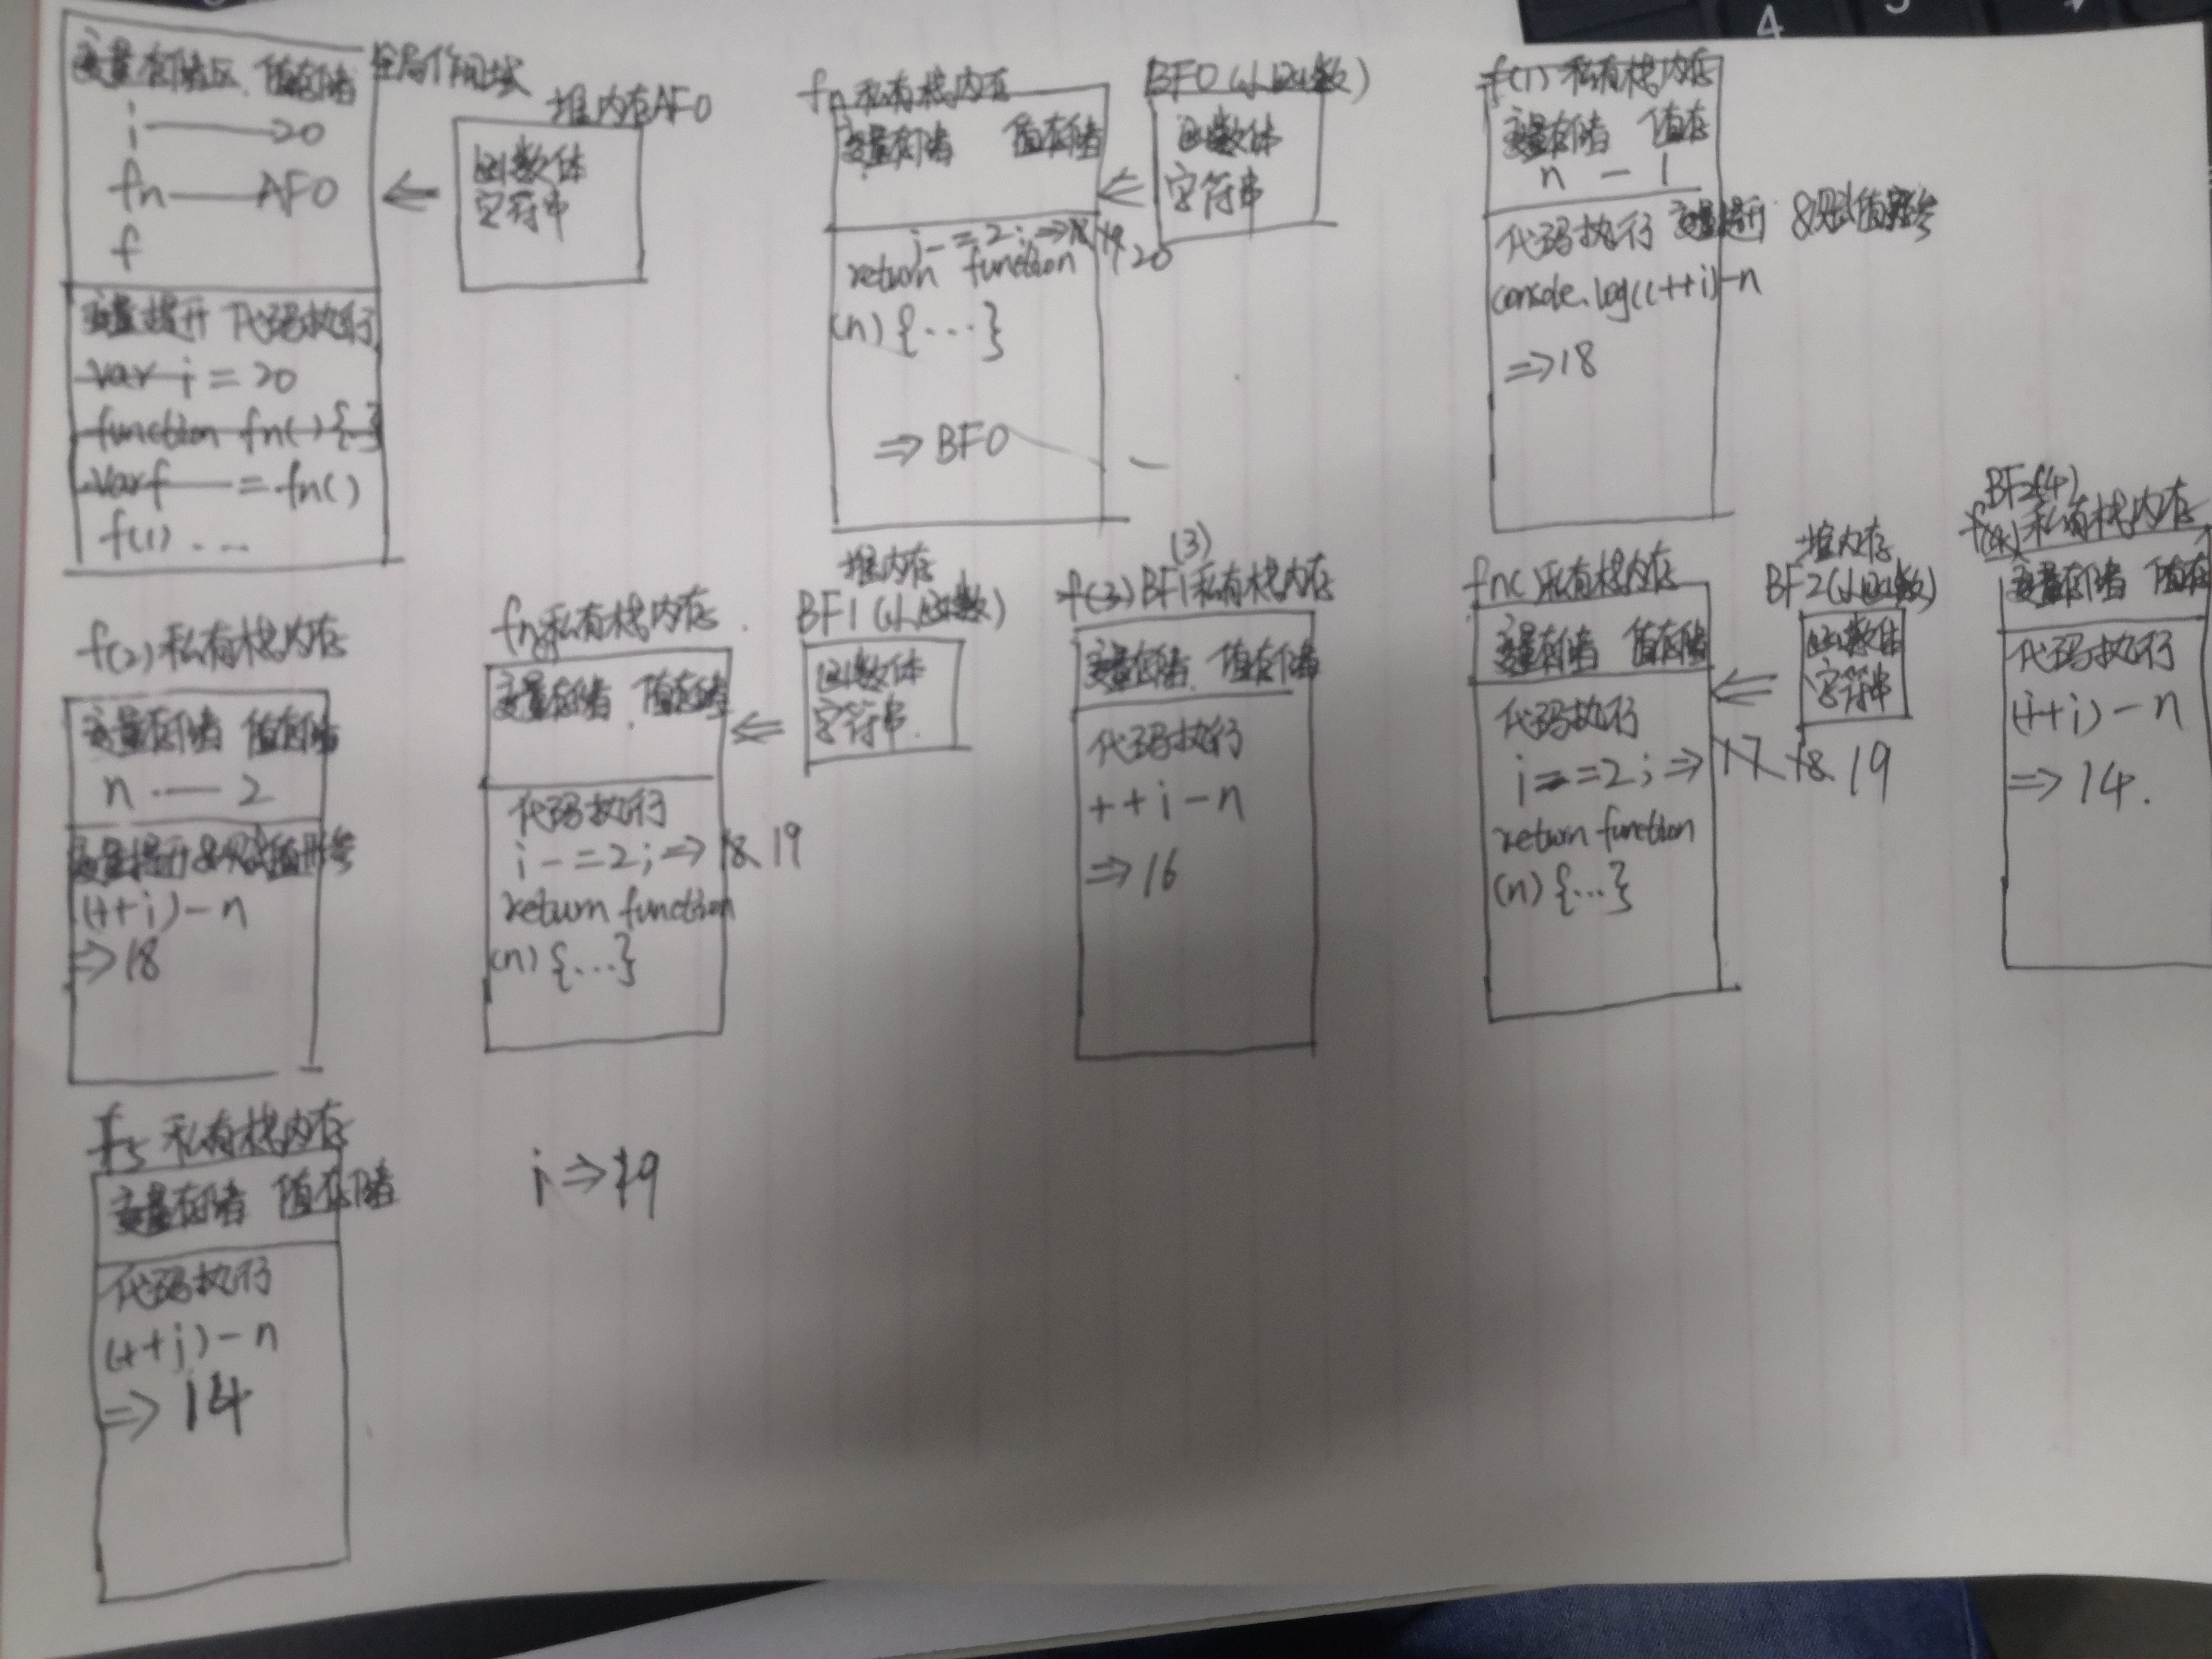 变量存储区 值存储
全局作用域
i —— 20
fn —— AF0
f
变量提升 代码执行
var i = 20
function fn(){...}
var f = fn()
f(1) ...
堆内存AF0
函数体
字符串
fn私有栈内存
变量存储 值存储
i -= 2; => 18 19 20
return function
(n) {...}
=> BF0
BF0(小函数)
函数体
字符串
f(1)私有栈内存
变量存储 值存
n — 1
代码执行 变量提升&赋值形参
console.log((++i)-n
=>18
f(2)私有栈内存
变量存储 值存储
n — 2
变量提升&赋值形参
(++i)-n
=>18
fn私有栈内存
变量存储 值存储
代码执行
i -= 2; => 18 19
return function
(n) {...}
堆内存
BF1(小函数)
函数体
字符串
(3)
f(3) BF1私有栈内存
变量存储 值存储
代码执行
++i-n
=>16
fn()私有栈内存
变量存储 值存储
代码执行
i -= 2; => 17 18 19
return function
(n) {...}
堆内存
BF2(小函数)
函数体
字符串
BF2(4)
f(4)私有栈内存
变量存储 值存
代码执行
(++i)-n
=>14.
f5 私有栈内存
变量存储 值存储
代码执行
(++i)-n
=> 14
i => 19
4